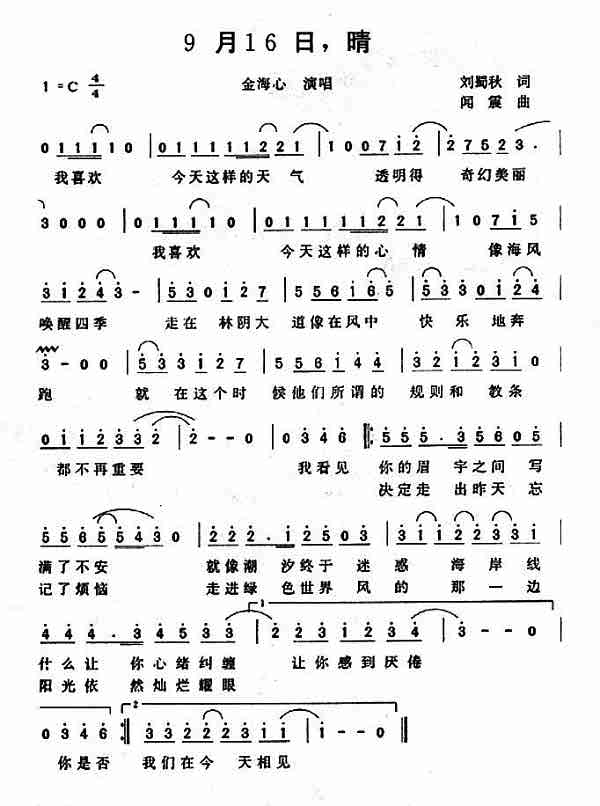 9 月16 日，晴
1=C 4/4 金海心 演唱 刘蜀秋 词
闻震 曲
0 1 1 1 1 0 | 0 1 1 1 1 1 2 2 1 | 1 0 0 7 1 2 | 2 7 5 2 3 . |
我喜欢 今天这样的天气 透明得 奇幻美丽
3 0 0 0 | 0 1 1 1 1 0 | 0 1 1 1 1 1 2 2 1 | 1 0 7 1 5 |
我喜欢 今天这样的心情 像海风
3 1 2 4 3 - | 5 3 0 1 2 7 | 5 5 6 1 6 5 | 5 3 0 1 2 7 |
唤醒四季 走在 林阴大 道像在风中 快乐 地奔
3 - 0 0 | 5 3 3 1 2 7 | 5 5 6 1 4 4 | 3 2 1 2 3 1 0 |
跑 就 在这个时 候他们所谓的 规则和 教条
0 1 1 2 3 3 2 | 2 - - 0 | 0 3 4 6 |: 5 5 5 . 3 5 6 0 5 |
都不再重要 我看见 你的眉 宇之间 写
决定走 出昨天 忘
5 5 6 5 5 4 3 0 | 2 2 2 . 1 2 5 0 3 | 3 2 1 2 3 1 |
满了不安 就像潮 汐终于 迷惑 海岸线
记了烦恼 走进绿 色世界 风的 那一边
4 4 4 . 3 4 5 3 3 | 2 2 3 1 2 3 4 | 3 - - 0 |
什么让 你心绪纠缠 让你感到厌倦
阳光依 然灿烂耀眼
0 3 4 6 :| 3 3 2 2 2 1 1 | 1 - - 0 |
你是否 我们在今 天相见